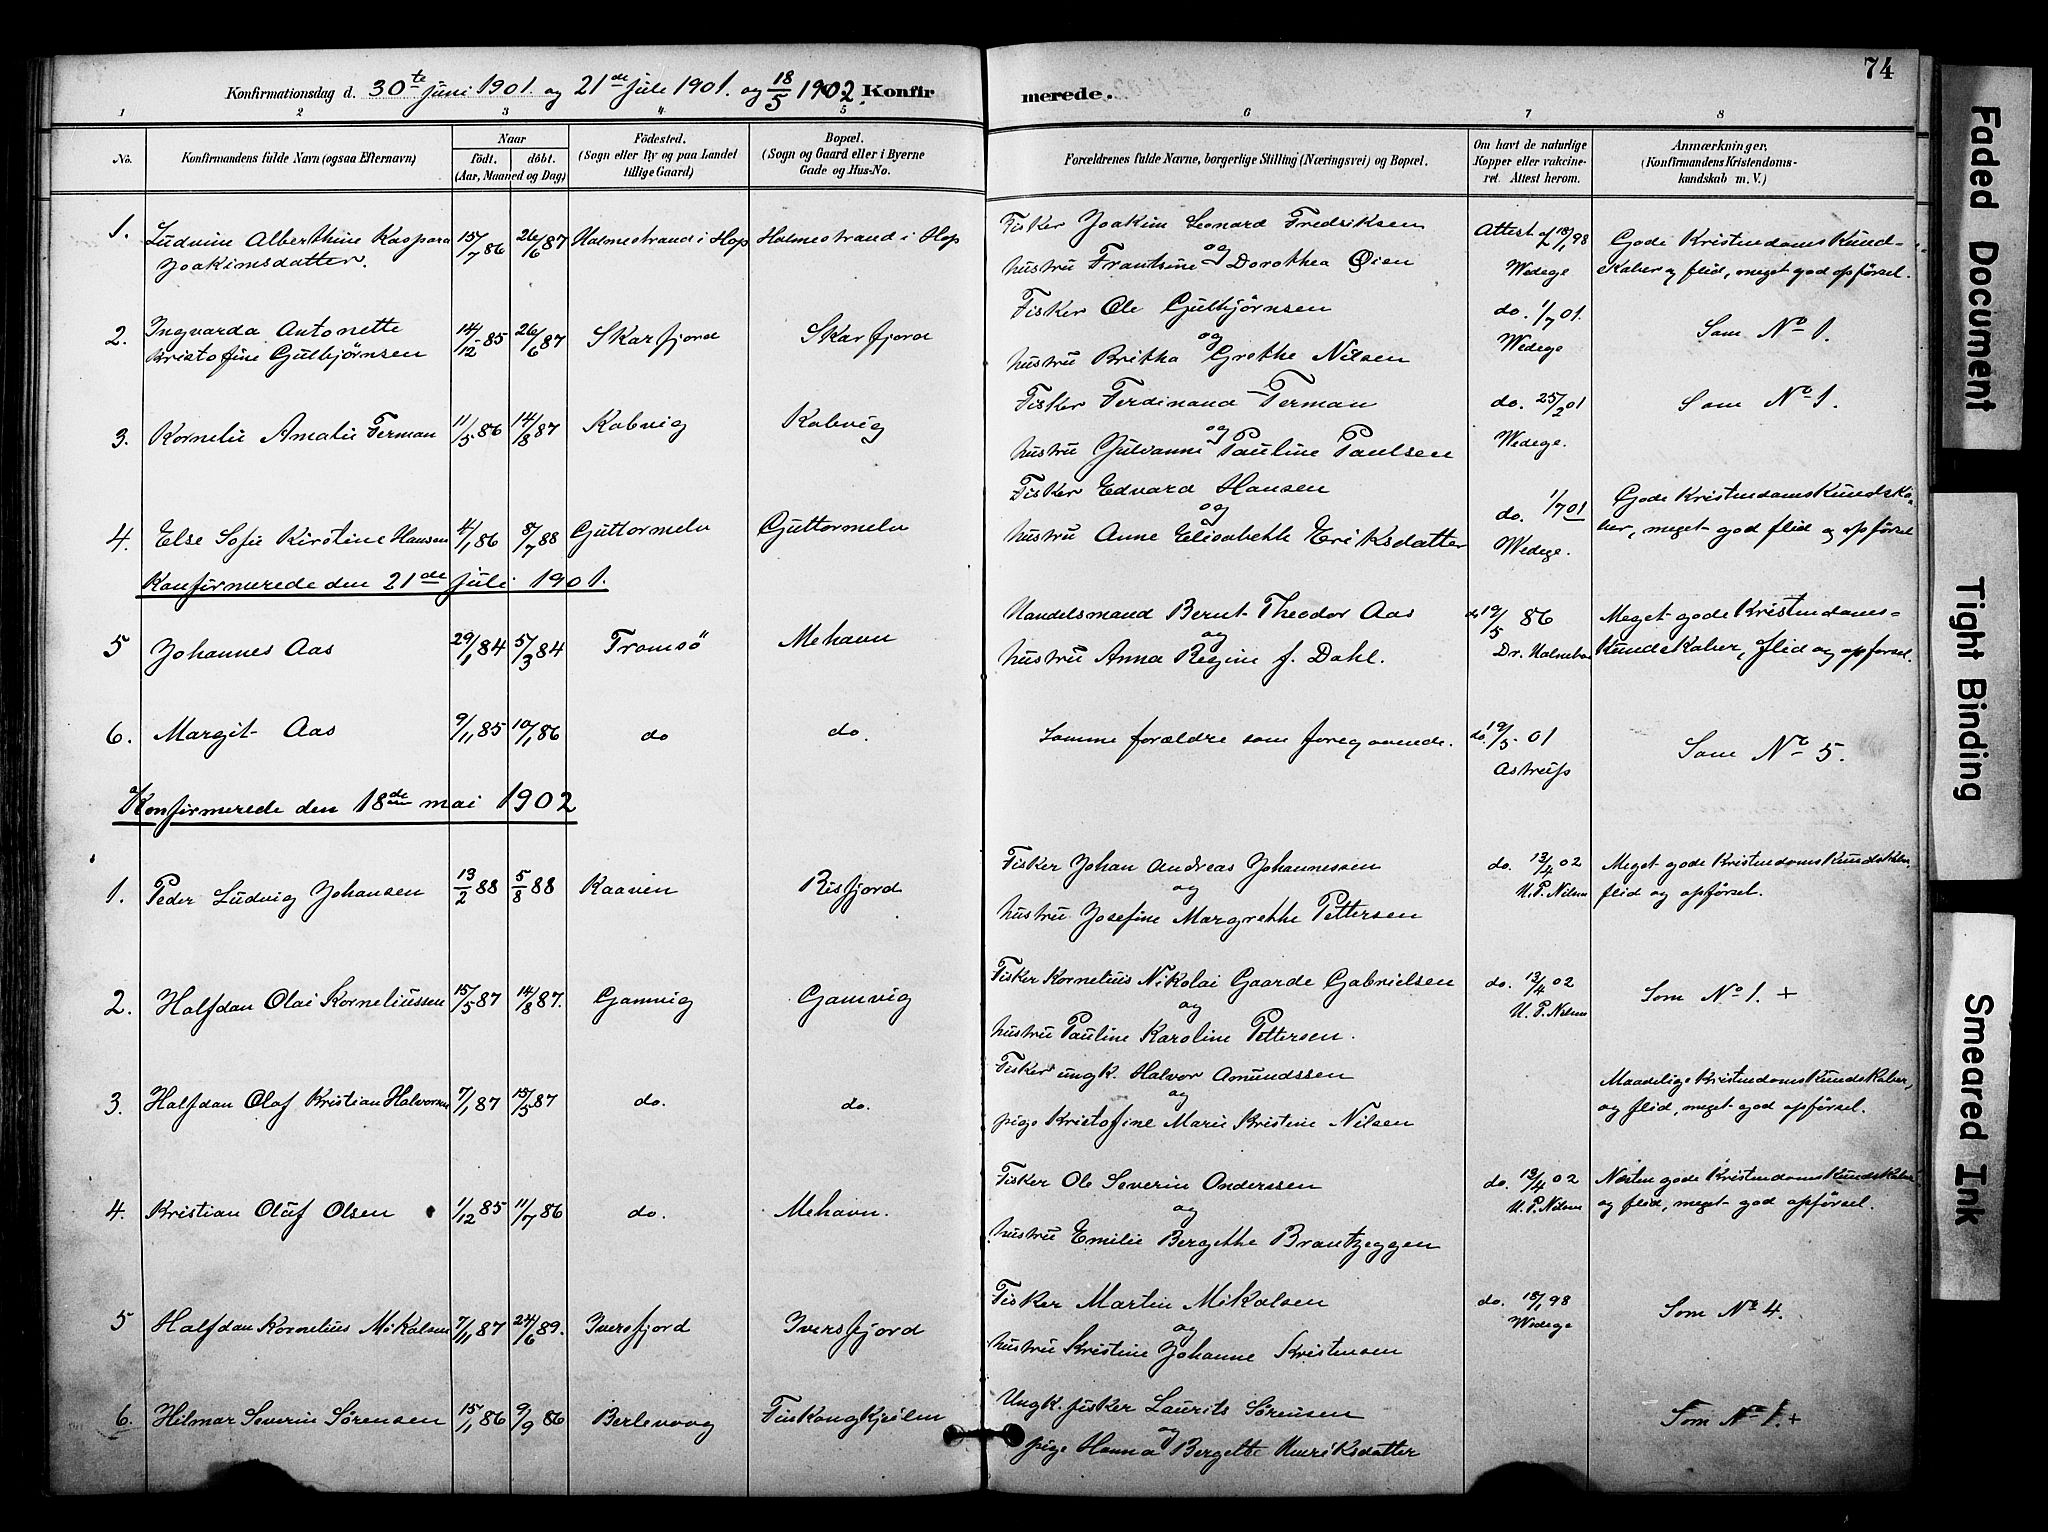 74
Konfirmationsdag d. 30te juni 1901. og 21de jule 1901. og 18/5 1902. Konfir merede.
1 2 3 4 5 6 7 8
No. Konfirmandens fulde Navn (ogsaa Efternavn) Naar födt. döbt. (Aar, Maaned og Dag) Födested. (Sogn eller By og paa Landet tillige Gaard) Bopæl. (Sogn og Gaard eller i Byerne Gade og Hus-No. Forældrenes fulde Navne, borgerlige Stilling (Næringsvei) og Bopæl. Om havt de naturlige Kopper eller vakcineret. Attest herom. Anmærkninger. (Konfirmandens Kristendomskundskab m. V.)
1. Ludvine Alberthine Kaspara Joakimsdatter. 15/7 86 26/6 87 Halmestrand i Hop Halmestrand i Hop
Fisker Joakim Leonard Fredriksen og hustru Frantsine Dorothea Øien
Attest af 18/1 98 Wedege
Gode Kristendoms Kundskaber og flid, meget god opførsel.
2. Ingvarda Antonette Kristofine Gulbjørnsen 14/12 85 26/6 87 Skarfjord Skarfjord
Fisker Ole Gulbjørnsen og hustru Britha Grethe Nilsen
do. 1/7 01. Wedege
Som No 1.
3. Kornelie Amalie Ferman 11/5 86 14/8 87 Kobvig Kobvig
Fisker Ferdinand Ferman og hustru Gulvanne Pauline Paulsen
do. 25/2 01 Wedege.
Som No 1.
4. Else Sofie Kirstine Hansen 4/1 86 8/7 88 Guttormelv Guttormelv
Fisker Edvard Hansen og hustru Anne Elisabethe Eriksdatter
do. 1/7 01 Wedege.
Gode Kristendoms Kundskaber, meget god flid og opførsel
Konfirmerede den 21de juli 1901.
5 Johannes Aas 29/1 84 5/3 84 Tromsö Mehavn
Handelsmand Bernt Theodor Aas og hustru Anna Regine f. Dahl.
do 19/5 86 Dr.
Meget gode Kristendoms-Kundskaber, flid og opførsel.
6. Margit Aas 9/11 85 10/1 86 do do.
Samme forældre som foregaaende.
do 19/5 01 Astrup
Som No 5.
Konfirmerede den 18de mai 1902
1. Peder Ludvig Johansen 13/2 88 5/8 88 Kaaven Risfjord
Fisker Johan Andreas Johannessen og hustru Josefine Margrethe Pettersen
do. 13/4 02 U. P. Nilsen
Meget gode Kristendoms Kundskaber, flid og opførsel.
2. Halfdan Olai Korneliussen 15/5 87 14/8 87. Gamvig Gamvig
Fisker Kornelius Nikolai Gaarde Gabrielsen og hustru Pauline Karoline Pettersen.
do. 13/4 02 U. P. Nilsen
Som No 1. +
3. Halfdan Olaf Kristian Halvorsen 7/1 87 15/5 87 do. do.
Fisker ungk. Halvor Amundssen og pige Kristofine Marie Kristine Nilsen
Maadelige Kristendoms Kundskaber, og flid, meget god opførsel.
4. Kristian Oluf Olsen 1/12 85 11/7 86 do. Mehavn.
Fisker Ole Severin Anderssen og hustru Emilie Bergethe Brantzeggen
do. 13/4 02 U. P. Nilsen
Næsten gode Kristendoms Kundskaber og flid, meget god opførsel.
5 Halfdan Kornelius Mikalsen 7/11 87 24/6 89. Iversfjord Iversfjord
Fisker Martin Mikalsen og hustru Kristine Johanne Kristensen
do. 18/1 98 Wedege
Som No 4.
6. Hilmar Severin Sørensen 15/1 86 9/9 86 Berlevaag Finkongkjeilen
Ungk. fisker Laurits Sørensen og pige Hanna Bergette Henriksdatter
Som No 1. +
Faded Document
Tight Binding
Smeared Ink